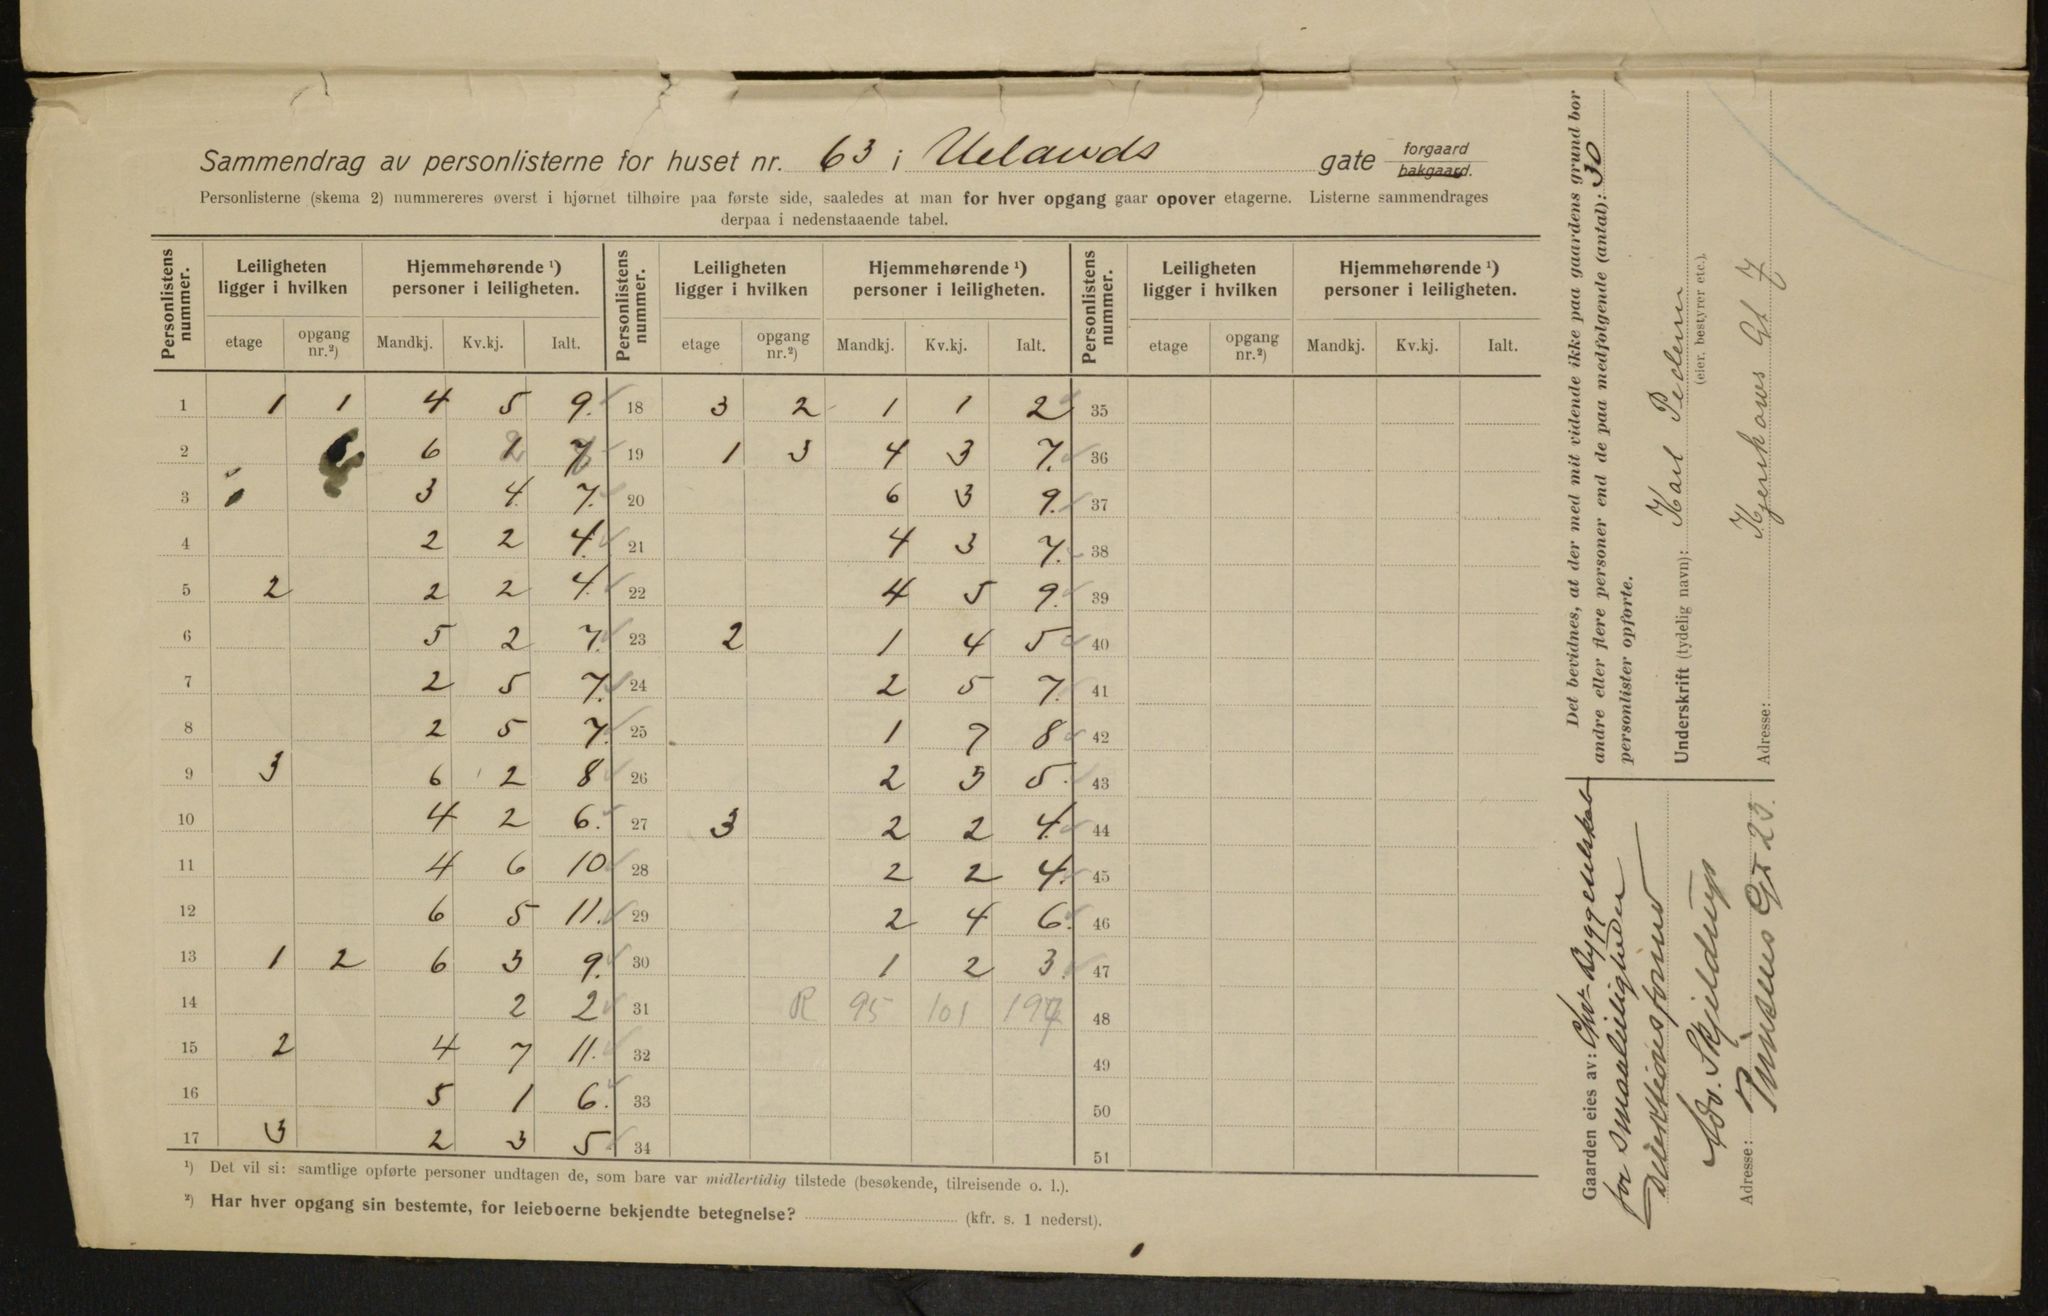 Sammendrag av personlisterne for huset nr. 63 i Uelands gate forgaard bakgaard.
Personlisterne (skema 2) nummereres øverst i hjørnet tilhøire paa første side, saaledes at man for hver opgang gaar opover etagerne. Listerne sammendrages
derpaa i nedenstaaende tabel.
Personlistens nummer. Leiligheten ligger i hvilken Hjemmehørende ¹) personer i leiligheten. Personlistens nummer. Leiligheten ligger i hvilken Hjemmehørende ¹) personer i leiligheten. Personlistens nummer. Leiligheten ligger i hvilken Hjemmehørende ¹) personer i leiligheten.
etage opgang nr.²) Mandkj. Kv.kj. Ialt. etage opgang nr.²) Mandkj. Kv.kj. Ialt. etage opgang nr.²) Mandkj. Kv.kj. Ialt.
1 1 1 4 5 9. 18 3 2 1 1 2 35
2 6 7 19 1 3 4 3 7. 36
3 3 4 7. 20 6 3 9. 37
4 2 2 4. 21 4 3 7. 38
5 2 2 2 4. 22 4 5 9. 39
6 5 2 7. 23 2 1 4 5 40
7 2 5 7. 24 2 5 7. 41
8 2 5 7. 25 1 7 8 42
9 3 6 2 8 26 2 3 5. 43
10 4 2 6. 27 3 2 2 4. 44
11 4 6 10 28 2 2 4. 45
12 6 5 11. 29 2 4 6. 46
13 1 2 6 3 9. 30 1 2 3. 47
14 2 2 31 R 95 101 48
15 2 4 7 11. 32 49
16 5 1 6. 33 50
17 3 2 3 5 34 51
¹) Det vil si: samtlige opførte personer undtagen de, som bare var midlertidig tilstede (besøkende, tilreisende o. l.).
²) Har hver opgang sin bestemte, for leieboerne bekjendte betegnelse? (kfr. s. 1 nederst).
Det bevidnes, at der med mit vidende ikke paa gaardens grund bor
andre eller flere personer end de paa medfølgende (antal): 30
personlister opførte.
Underskrift (tydelig navn): Karl Pedersen
(eier, bestyrer etc.).
Adresse: Hjerkans Gt 7
Gaarden eies av: Chr. Byggeselskab
for smaaleiligheder
Direktionsformand
Adv. Skjeldrup
Adresse: Prinsens Gt 23.